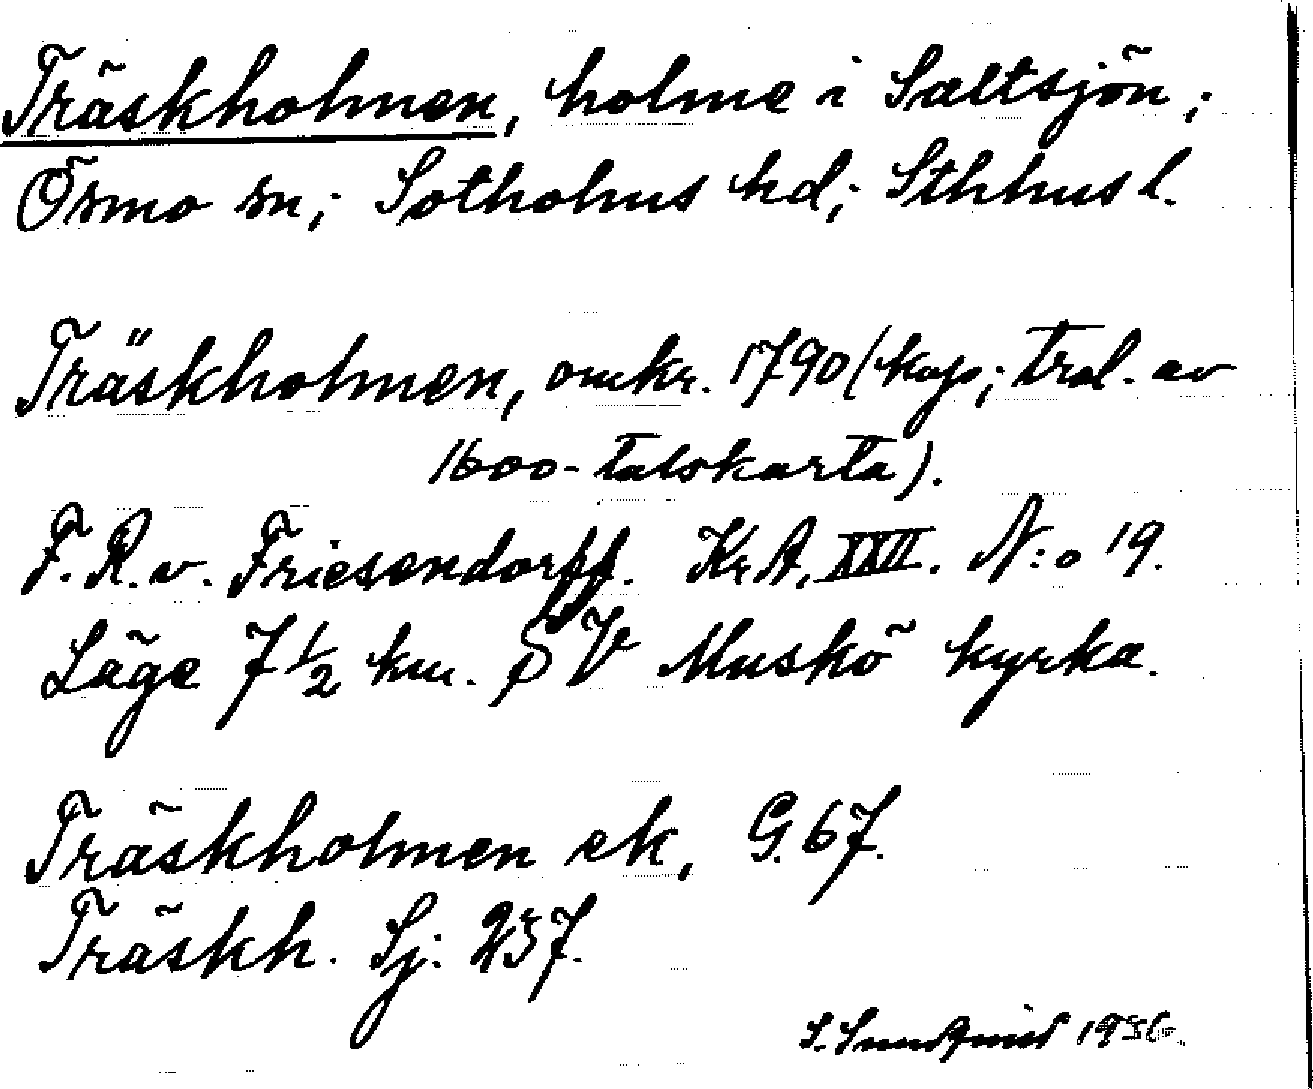 Träskholmen, holme i Saltsjön;
Ösmo sn; Sotholms hd; Sthlms l.
Träskholmen, omkr. 1790 (kop; trol. av
1600-talskarta).
F. R. v. Friesendorff. Kr.A. XXII. N:o 19.
Läge 7 1/2 km. SV Muskö kyrka.
Träskholmen ek, G. 67.
Träskh. Sj: 237.
S. Sundqvist 1936.